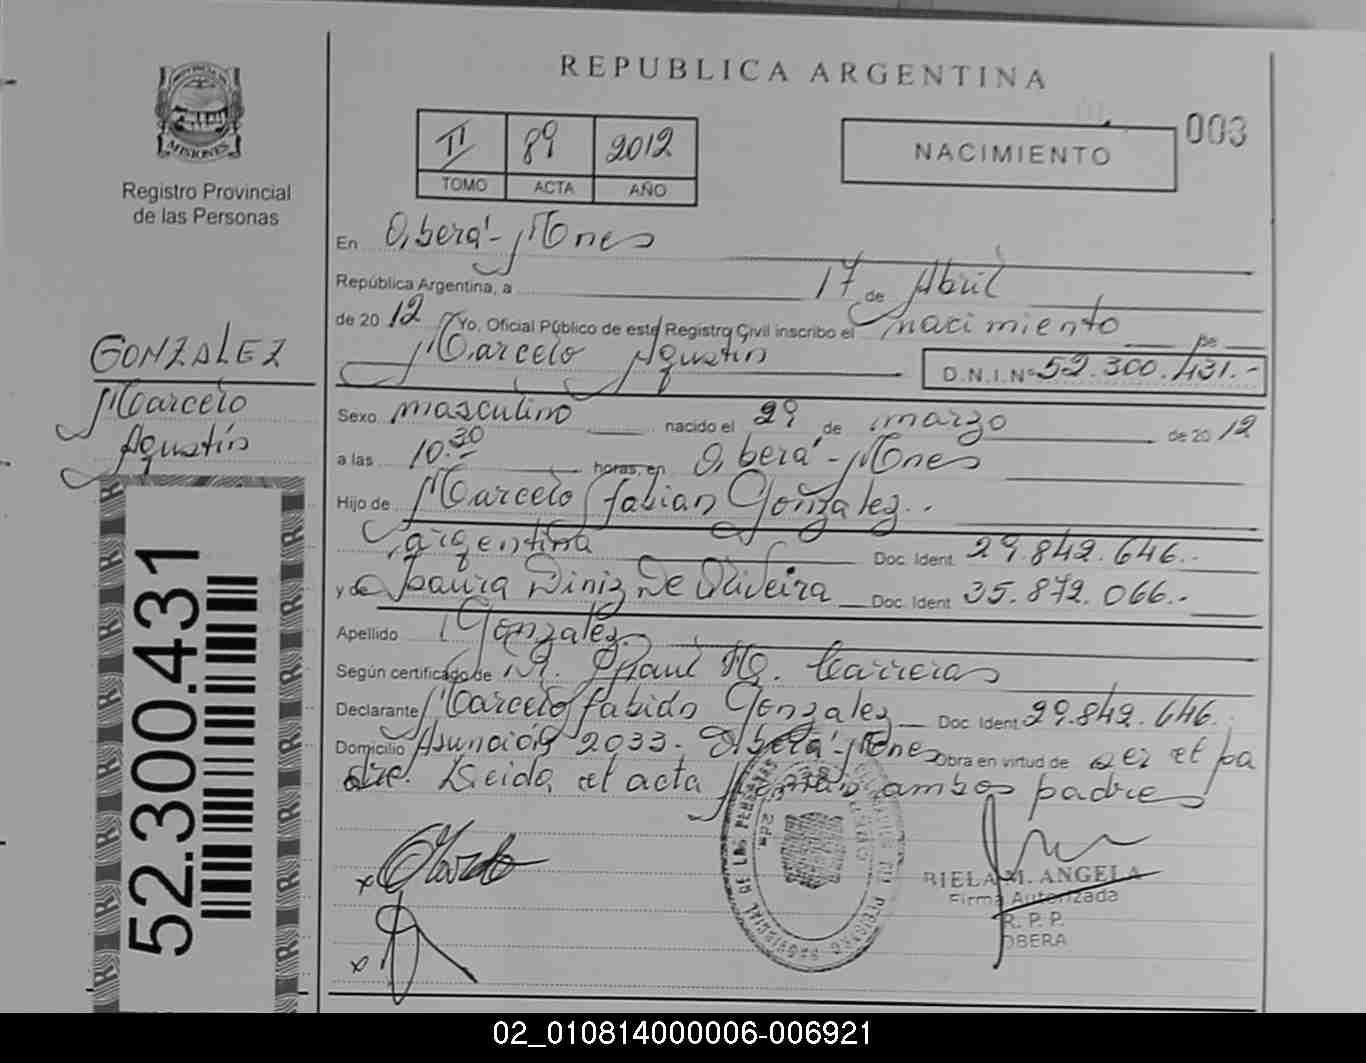 REPUBLICA ARGENTINA
MISIONES
Registro Provincial
de las Personas
II 89 2012
TOMO ACTA AÑO
NACIMIENTO
003
En Oberá - Mnes
República Argentina, a 17 de Abril
de 2012 Yo, Oficial Público de este Registro Civil inscribo el nacimiento de
Marcelo Agustín
D.N.I. Nº 52.300.431.-
GONZALEZ
Marcelo
Agustín
52.300.431
Sexo masculino nacido el 29 de marzo de 2012
a las 10:30 horas, en Oberá - Mnes
Hijo de Marcelo Fabian Gonzalez.
argentina Doc. Ident. 29.842.646.-
y de Laura Diniz De Oliveira Doc. Ident. 35.872.066.-
Apellido Gonzalez
Según certificado de M. Raul Carreras
Declarante Marcelo Fabián Gonzalez Doc. Ident. 29.842.646.
Domicilio Asunción 2033 - Oberá - Mnes Obra en virtud de ser el pa
dre. Leida el acta ambos padres
BIELA M. ANGELA
Firma Autorizada
R. P. P.
OBERA
02_010814000006-006921